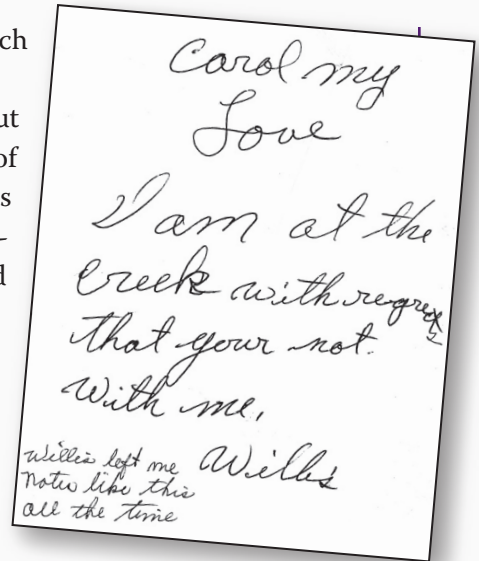 ch
ut
of
s
–
d
Carol my
Love
I am at the
creek with regrets
that your not
with me,
Willis
Willis left me
notes like this
all the time